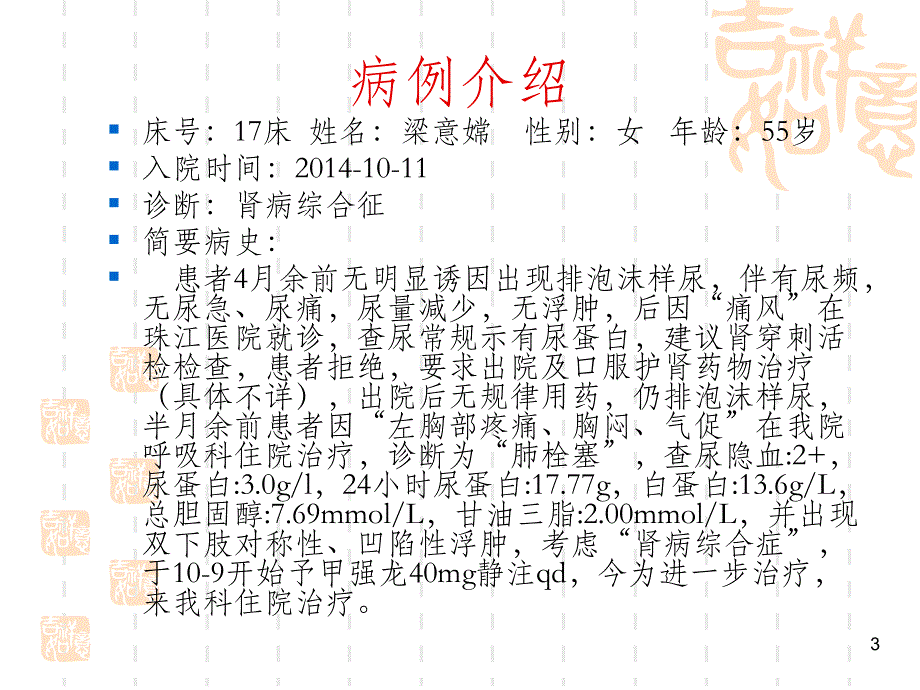 吉祥如意
病例介绍
床号：17床 姓名：梁意嫦 性别：女 年龄：55岁
入院时间：2014-10-11
诊断：肾病综合征
简要病史：
患者4月余前无明显诱因出现排泡沫样尿，伴有尿频，
无尿急、尿痛，尿量减少，无浮肿，后因“痛风”在
珠江医院就诊，查尿常规示有尿蛋白，建议肾穿刺活
检检查，患者拒绝，要求出院及口服护肾药物治疗
（具体不详），出院后无规律用药，仍排泡沫样尿，
半月余前患者因“左胸部疼痛、胸闷、气促”在我院
呼吸科住院治疗，诊断为“肺栓塞”，查尿隐血:2+,
尿蛋白:3.0g/l，24小时尿蛋白:17.77g，白蛋白:13.6g/L，
总胆固醇:7.69mmol/L，甘油三脂:2.00mmol/L，并出现
双下肢对称性、凹陷性浮肿，考虑“肾病综合症”，
于10-9开始予甲强龙40mg静注qd，今为进一步治疗，
来我科住院治疗。
吉祥如意
吉祥如意
吉祥如意
3